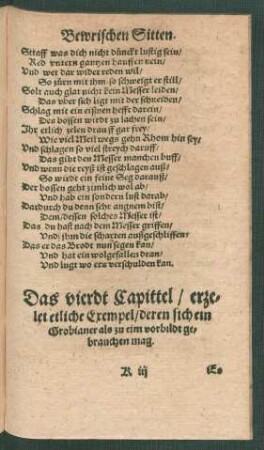 Bewrischen Sitten.
Straff was dich nicht dünckt lustig sein/
Red vntern gantzen hauffen rein/
Vnd wer dar wider reden wil/
So zürn mit ihm so schweigt er still/
Solt auch glat nicht kein Messer leiden/
Das vber sich ligt mit der schneiden/
Schlag mit ein eisznen hefft darein/
Des bossen wirdt zu lachen sein/
Ihr etlich zelen drauff gar frey/
Wie viel Meil wegs gehn Rhom hin sey/
Vnd schlagen so viel streych darauff/
Das gibt den Messer manchen buff/
Vnd wenn die reyß ist geschlagen auß/
So wirdt ein feine Seg darauß/
Der bossen geht zimlich wol ab/
Vnd hab ein sondern lust darab/
Dardurch du denn sehr angnem bist/
Dem/dessen solches Messer ist/
Das du hast nach dem Messer griffen/
Vnd ihm die scharten außgeschliffen/
Das er das Brodt nun segen kan/
Vnd hat ein wolgefallen dran/
Vnd lugt wo ers verschulden kan.
Das vierdt Capittel / erze-
let etliche Exempel/deren sich ein
Grobianer als zu eim vorbildt ge-
brauchen mag.
K iij
E.